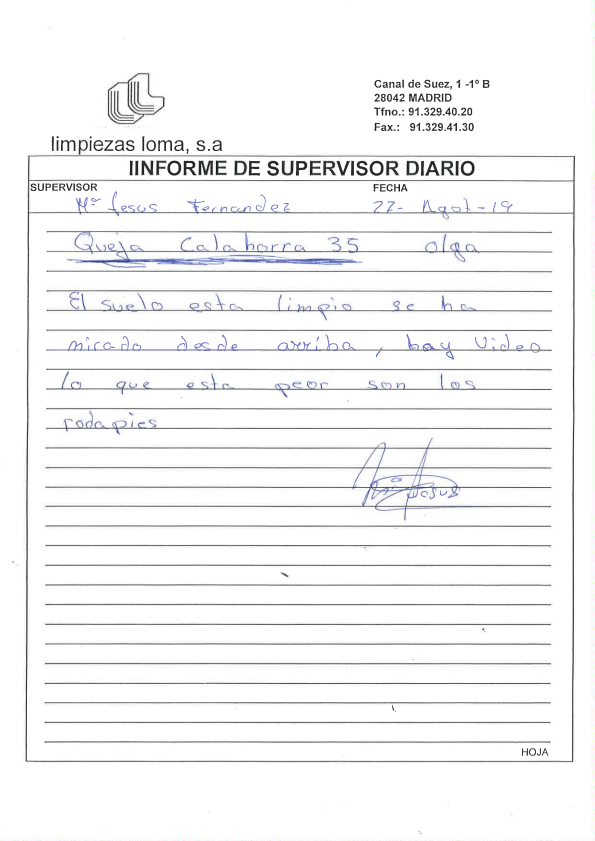 Canal de Suez, 1 -1º B
28042 MADRID
Tfno.: 91.329.40.20
Fax.: 91.329.41.30
limpiezas loma, s.a
IINFORME DE SUPERVISOR DIARIO
SUPERVISOR FECHA
Mª Jesus Fernandez 22- Agot-19
Queja Calahorra 35 olga
El suelo esta limpio se ha
mirado desde arriba, hay Video
lo que esta peor son los
rodapies
Mª Jesus
HOJA